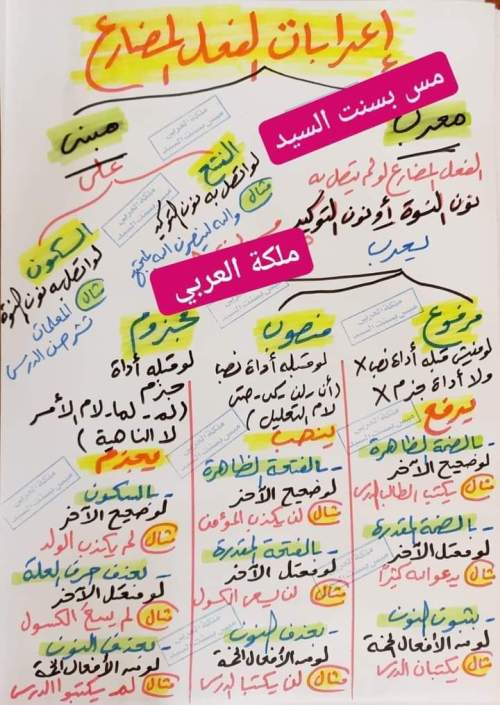 إعرابات الفعل المضارع
مس بسنت السيد
معرب
الفعل المضارع لو لم يتصل به
نون النسوة أو نون التوكيد
يعرب
ملكة العربي
مبنى
على
الفتح
لو اتصل به نون التوكيد
مثال والله لينصرن الله
السكون
لو اتصل به نون النسوة
مثال المعلمات
تشرحن الدرس
مرفوع
لو مفيش قبله أداة نصب X
ولا أداة جزم X
يرفع
- بالضمة الظاهرة
لو صحيح الآخر
مثال يكتب الطالب الدرس
- بالضمة المقدرة
لو معتل الآخر
مثال يدعو الله كثيرًا
- بثبوت النون
لو من الأفعال الخمسة
مثال يكتبان الدرس
منصوب
لو قبله أداة نصب
(أن - لن - كى - حتى
لام التعليل)
ينصب
- بالفتحة الظاهرة
لو صحيح الآخر
مثال لن يكذب المؤمن
- بالفتحة المقدرة
لو معتل الآخر
مثال لن يسعى الكسول
- بحذف النون
لو من الأفعال الخمسة
مثال لن يكتبا الدرس
مجزوم
لو قبله أداة
جزم
(لم - لما - لام الأمر
لا الناهية)
يجزم
- بالسكون
لو صحيح الآخر
مثال لم يكذب الولد
- بحذف حرف العلة
لو معتل الآخر
مثال لم يسع الكسول
- بحذف النون
لو من الأفعال الخمسة
مثال لم يكتبوا الدرس
ملكة العربي
ميس بسنت السيد